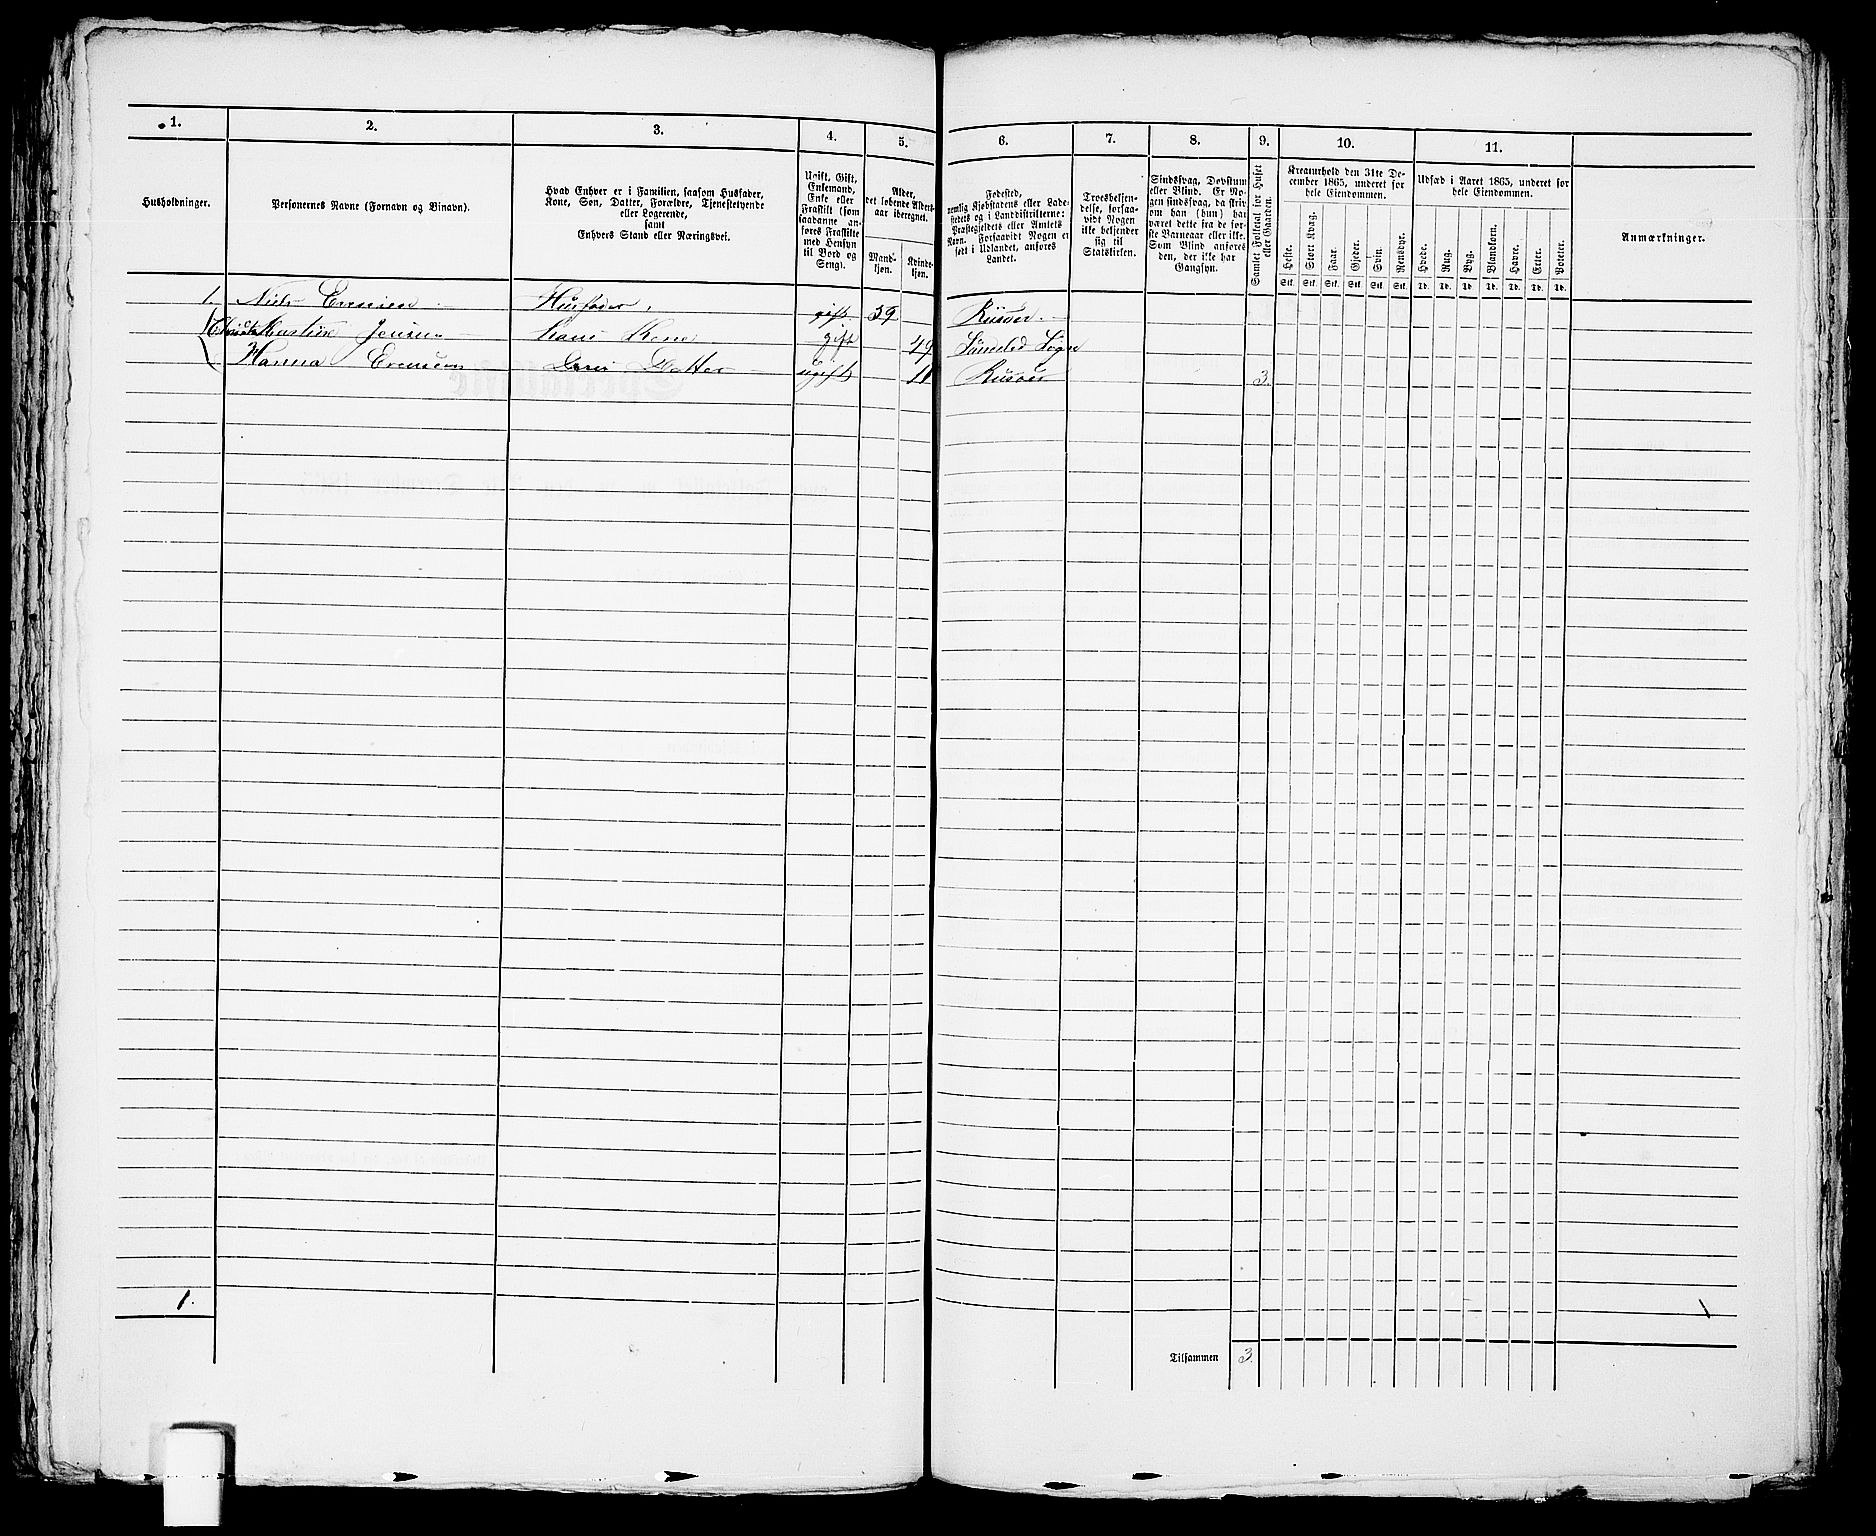 1. 2. 3. 4. 5. 6. 7. 8. 9. 10. 11.
Husholdninger.
Personernes Navne (Fornavn og Binavn).
Hvad Enhver er i Familien, saasom Husfader,
Kone, Søn, Datter, Forældre, Tjenestetyende
eller Logerende,
samt
Enhvers Stand eller Næringsvei.
Ugift, Gift,
Enkemand,
Enke eller
Fraskilt (som
saadanne an-
føres Fraskilte
med Hensyn
til Bord og
Seng).
Alder,
det løbende Alders-
aar iberegnet.
Mand-
kjøn.
Kvinde-
kjøn.
Fødested,
nemlig Kjøbstadens eller Lade-
stedets og i Landdistrikterne:
Præstegjeldets eller Amtets
Navn. Forsaavidt Nogen er
født i Udlandet, anføres
Landet.
Troesbekjen-
delse, forsaa-
vidt Nogen
ikke bekjender
sig til
Statskirken.
Sindssvag, Døvstum
eller Blind. Er No-
gen sindssvag, da skriv
om han (hun) har
været dette fra de før-
ste Barneaar eller ikke.
Som Blind anføres
den, der ikke har
Gangsyn.
Samlet Folketal for Huset
eller Gaarden.
Kreaturhold den 31te De-
cember 1865, underet for
hele Eiendommen.
Heste. Stort Kvæg. Faar. Gjeder. Svin. Rensdyr.
Stk. Stk. Stk. Stk. Stk. Stk.
Udsæd i Aaret 1865, underet for
hele Eiendommen.
Hvede. Rug. Byg. Blandkorn. Havre. Erter. Poteter.
Td. Td. Td. Td. Td. Td. Td.
Anmærkninger.
1. Niels Husfader, gift. 59 Riisöer.
Jensen Hans Kone gift 49 Söndeled Sogn
Hanna Evensen Datter ugift 11 Riisöer 3.
1. 1
Tilsammen 3.